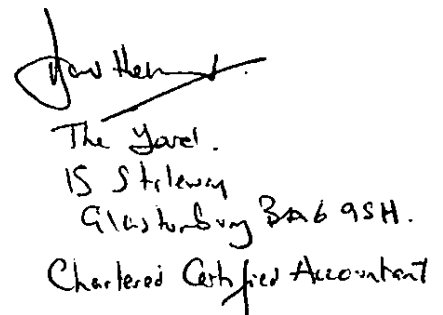 The Yard.
15 Stileway
Glastonbury BA6 9SH.
Chartered Certified Accountant